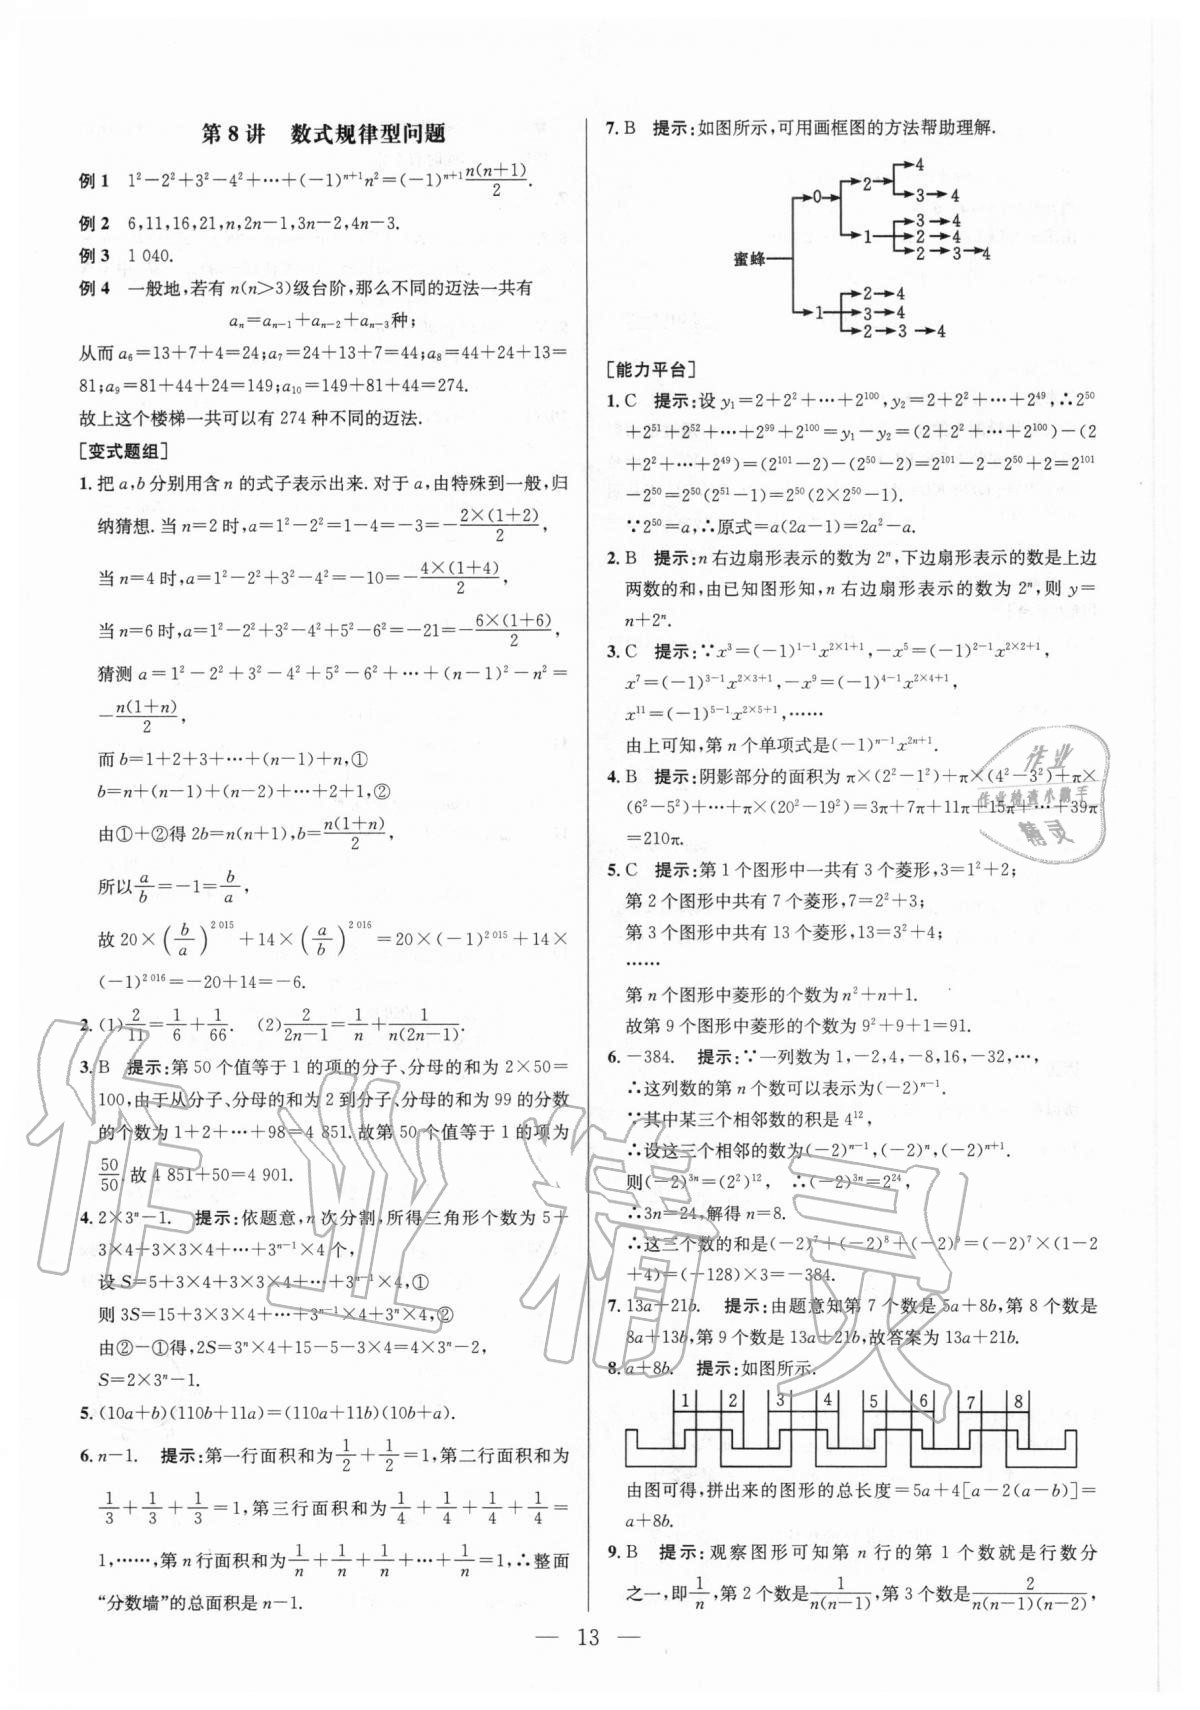 第8讲 数式规律型问题
例1 1²-2²+3²-4²+…+(-1)ⁿ⁺¹n²=(-1)ⁿ⁺¹n(n+1)/2.
例2 6,11,16,21,n,2n-1,3n-2,4n-3.
例3 1 040.
例4 一般地,若有n(n>3)级台阶,那么不同的迈法一共有
aₙ=aₙ₋₁+aₙ₋₂+aₙ₋₃种;
从而a₆=13+7+4=24;a₇=24+13+7=44;a₈=44+24+13=
81;a₉=81+44+24=149;a₁₀=149+81+44=274.
故上这个楼梯一共可以有274种不同的迈法.
[变式题组]
1.把a,b分别用含n的式子表示出来.对于a,由特殊到一般,归
纳猜想.当n=2时,a=1²-2²=1-4=-3=-2×(1+2)/2,
当n=4时,a=1²-2²+3²-4²=-10=-4×(1+4)/2,
当n=6时,a=1²-2²+3²-4²+5²-6²=-21=-6×(1+6)/2,
猜测a=1²-2²+3²-4²+5²-6²+…+(n-1)²-n²=
-n(1+n)/2,
而b=1+2+3+…+(n-1)+n,①
b=n+(n-1)+(n-2)+…+2+1,②
由①+②得2b=n(n+1),b=n(1+n)/2,
所以a/b=-1=b/a,
故20×(b/a)²⁰¹⁵+14×(a/b)²⁰¹⁶=20×(-1)²⁰¹⁵+14×
(-1)²⁰¹⁶=-20+14=-6.
2.(1)2/11=1/6+1/66. (2)2/(2n-1)=1/n+1/n(2n-1).
3.B 提示:第50个值等于1的项的分子、分母的和为2×50=
100,由于从分子、分母的和为2到分子、分母的和为99的分数
的个数为1+2+…+98=4 851.故第50个值等于1的项为
50/50.故4 851+50=4 901.
4.2×3ⁿ-1. 提示:依题意,n次分割,所得三角形个数为5+
3×4+3×3×4+…+3ⁿ⁻¹×4个,
设S=5+3×4+3×3×4+…+3ⁿ⁻¹×4,①
则3S=15+3×3×4+…+3ⁿ⁻¹×4+3ⁿ×4,②
由②-①得,2S=3ⁿ×4+15-5-3×4=3ⁿ×4-2,
S=2×3ⁿ-1.
5.(10a+b)(110b+11a)=(110a+11b)(10b+a).
6.n-1. 提示:第一行面积和为1/2+1/2=1,第二行面积和为
1/3+1/3+1/3=1,第三行面积和为1/4+1/4+1/4+1/4=
1,……,第n行面积和为1/n+1/n+1/n+…+1/n=1,∴整面
“分数墙”的总面积是n-1.
7.B 提示:如图所示,可用画框图的方法帮助理解.
蜜蜂
0 2 4
3 4
1 3 4
2 4
2 3 4
1 2 4
3 4
2 3 4
[能力平台]
1.C 提示:设y₁=2+2²+…+2¹⁰⁰,y₂=2+2²+…+2⁴⁹,∴2⁵⁰
+2⁵¹+2⁵²+…+2⁹⁹+2¹⁰⁰=y₁-y₂=(2+2²+…+2¹⁰⁰)-(2
+2²+…+2⁴⁹)=(2¹⁰¹-2)-(2⁵⁰-2)=2¹⁰¹-2-2⁵⁰+2=2¹⁰¹
-2⁵⁰=2⁵⁰(2⁵¹-1)=2⁵⁰(2×2⁵⁰-1).
∵2⁵⁰=a,∴原式=a(2a-1)=2a²-a.
2.B 提示:n右边扇形表示的数为2ⁿ,下边扇形表示的数是上边
两数的和,由已知图形知,n右边扇形表示的数为2ⁿ,则y=
n+2ⁿ.
3.C 提示:∵x³=(-1)¹⁻¹x²ˣ¹⁺¹,-x⁵=(-1)²⁻¹x²ˣ²⁺¹,
x⁷=(-1)³⁻¹x²ˣ³⁺¹,-x⁹=(-1)⁴⁻¹x²ˣ⁴⁺¹,
x¹¹=(-1)⁵⁻¹x²ˣ⁵⁺¹,……
由上可知,第n个单项式是(-1)ⁿ⁻¹x²ⁿ⁺¹.
4.B 提示:阴影部分的面积为π×(2²-1²)+π×(4²-3²)+π×
(6²-5²)+…+π×(20²-19²)=3π+7π+11π+15π+…+39π
=210π.
5.C 提示:第1个图形中一共有3个菱形,3=1²+2;
第2个图形中共有7个菱形,7=2²+3;
第3个图形中共有13个菱形,13=3²+4;
……
第n个图形中菱形的个数为n²+n+1.
故第9个图形中菱形的个数为9²+9+1=91.
6.-384. 提示:∵一列数为1,-2,4,-8,16,-32,…,
∴这列数的第n个数可以表示为(-2)ⁿ⁻¹.
∵其中某三个相邻数的积是4¹²,
∴设这三个相邻的数为(-2)ⁿ⁻¹,(-2)ⁿ,(-2)ⁿ⁺¹.
则(-2)³ⁿ=(2²)¹², ∴(-2)³ⁿ=2²⁴,
∴3n=24,解得n=8.
∴这三个数的和是(-2)⁷+(-2)⁸+(-2)⁹=(-2)⁷×(1-2
+4)=(-128)×3=-384.
7.13a+21b. 提示:由题意知第7个数是5a+8b,第8个数是
8a+13b,第9个数是13a+21b,故答案为13a+21b.
8.a+8b. 提示:如图所示.
1 2 3 4 5 6 7 8
由图可得,拼出来的图形的总长度=5a+4[a-2(a-b)]=
a+8b.
9.B 提示:观察图形可知第n行的第1个数就是行数分
之一,即1/n,第2个数是1/n(n-1),第3个数是2/n(n-1)(n-2),
— 13 —
作业
作业检查小帮手
精灵
作业精灵